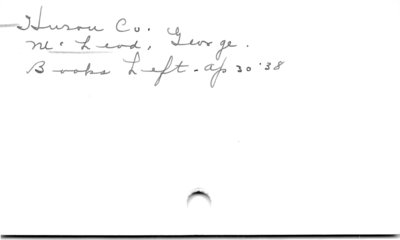 Huron Co.
Mc Leod, George.
Books Left. Ap 30 '38